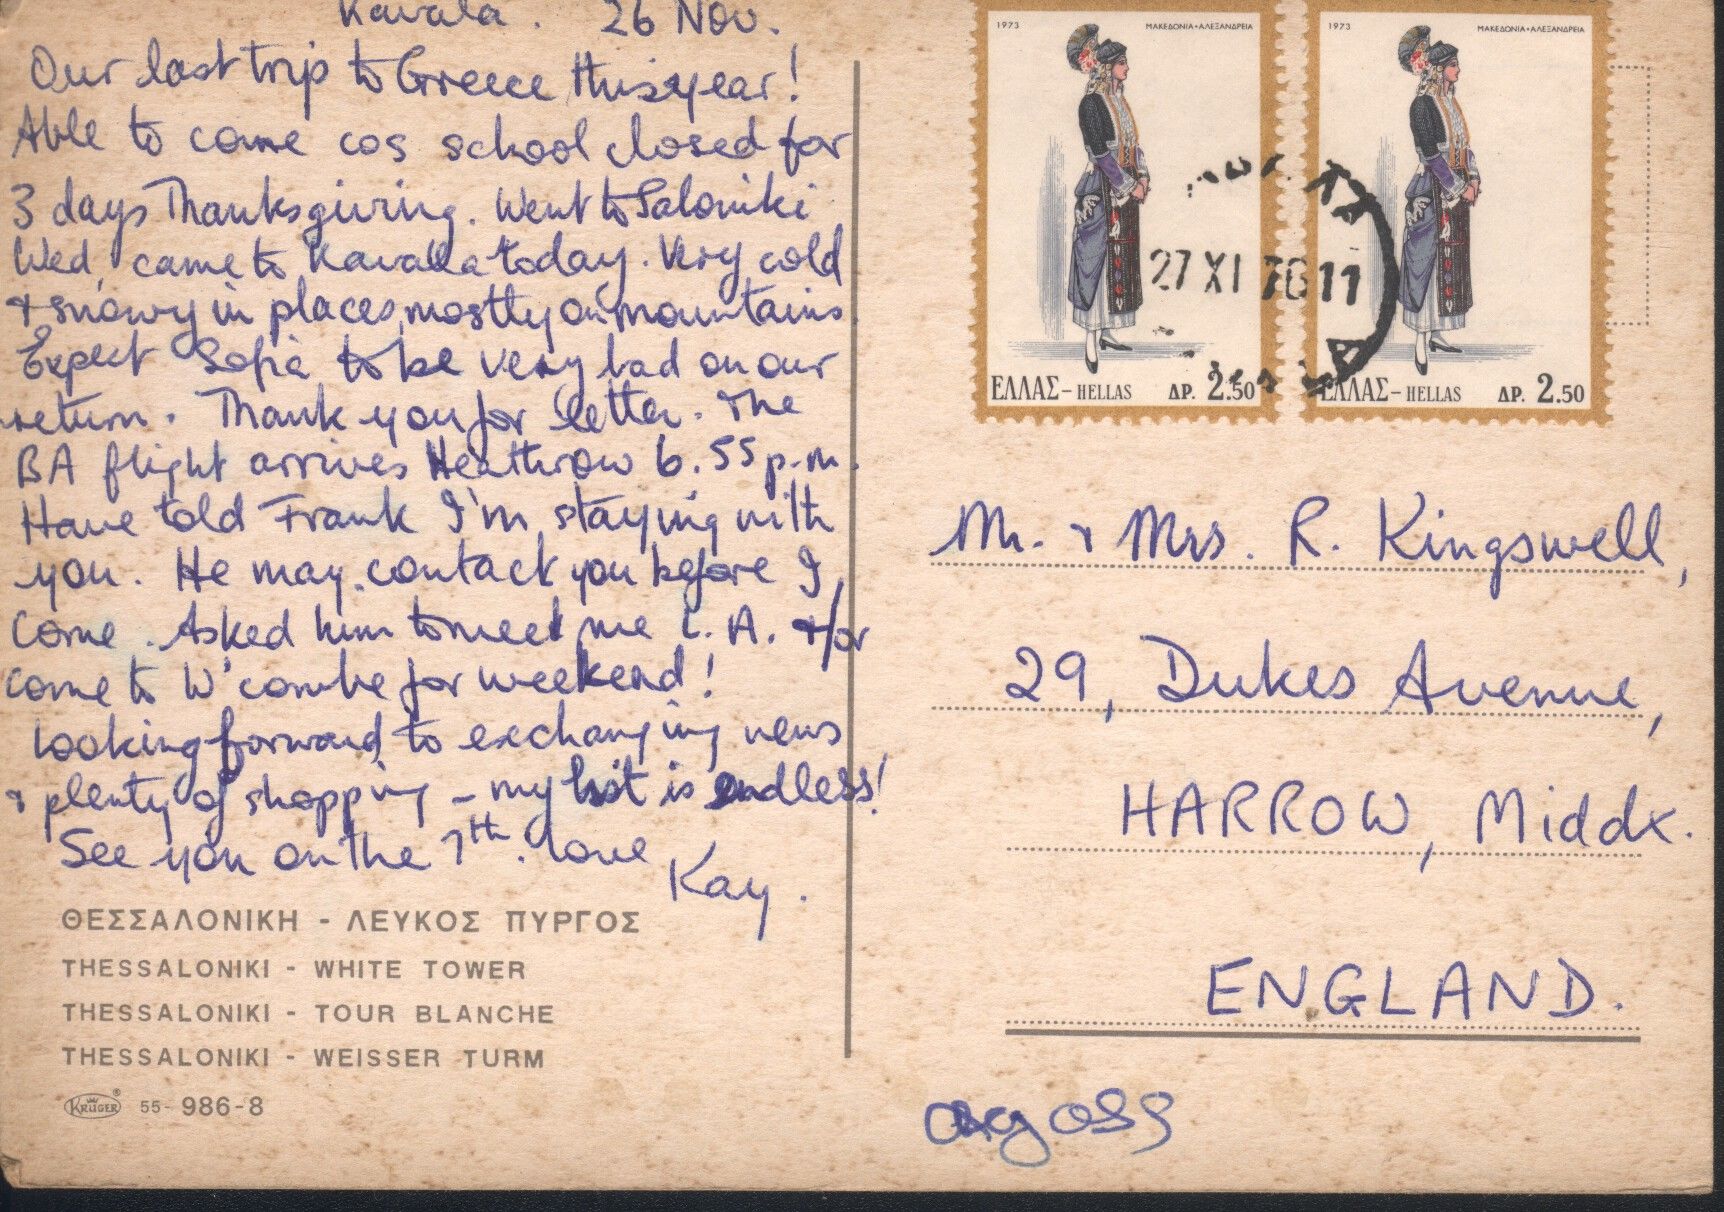 Kavala. 26 Nov.
Our last trip to Greece this year!
Able to come cos school closed for
3 days Thanksgiving. Went to Saloniki
Wed, came to Kavalla today. Very cold
& snowy in places, mostly on mountains.
Expect Sofia to be very bad on our
return. Thank you for letter. The
BA flight arrives Heathrow 6.55 p.m.
Have told Frank I'm staying with
you. He may contact you before I
come. Asked him to meet me L.A. &/or
come to W'combe for weekend!
Looking forward to exchanging news
& plenty of shopping - my list is endless!
See you on the 7th. Love
Kay.
ΘΕΣΣΑΛΟΝΙΚΗ - ΛΕΥΚΟΣ ΠΥΡΓΟΣ
THESSALONIKI - WHITE TOWER
THESSALONIKI - TOUR BLANCHE
THESSALONIKI - WEISSER TURM
KRÜGER ® 55- 986-8
1973 ΜΑΚΕΔΟΝΙΑ•ΑΛΕΞΑΝΔΡΕΙΑ
ΕΛΛΑΣ-HELLAS ΔΡ. 2.50
1973 ΜΑΚΕΔΟΝΙΑ•ΑΛΕΞΑΝΔΡΕΙΑ
ΕΛΛΑΣ-HELLAS ΔΡ. 2.50
27 XI 76 11
Mr. & Mrs. R. Kingswell,
29, Dukes Avenue,
HARROW, Middx.
ENGLAND.